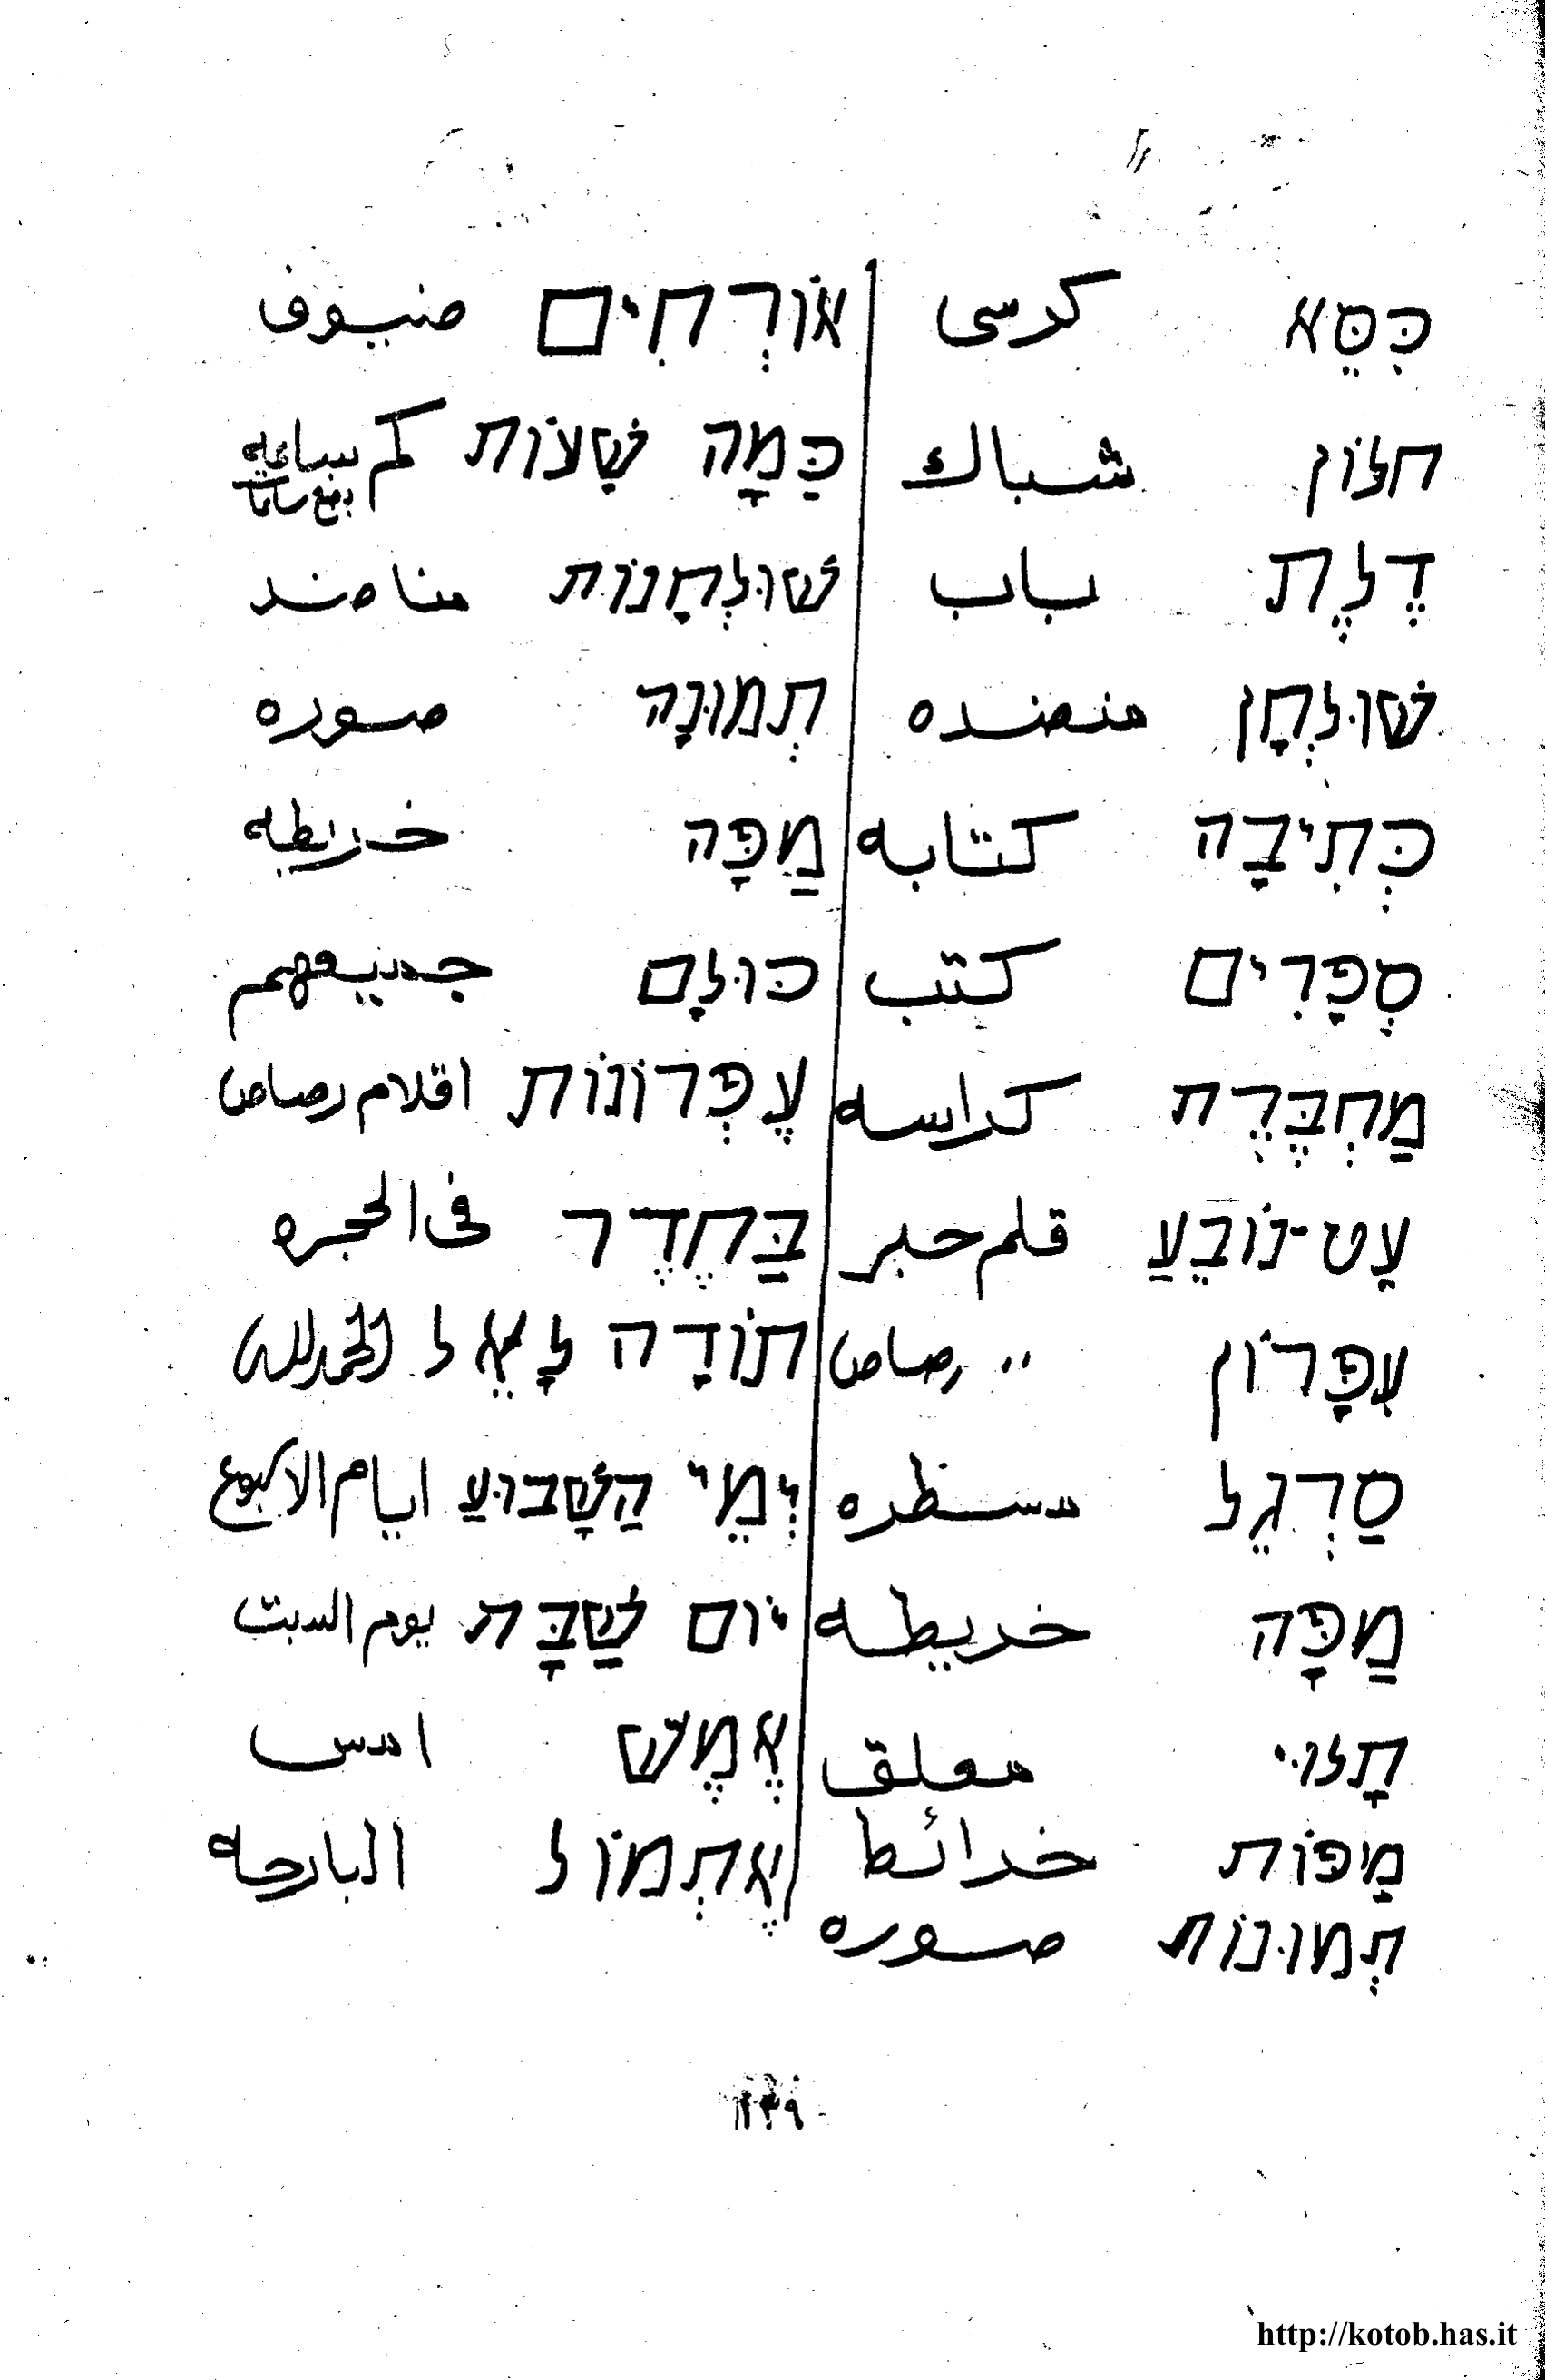 כִּסֵּא كرسى אוֹרְחִים ضيوف
חלוֹן شباك כַּמָּה שָׁעוֹת كم ساعه
دفع ساعات
דֶלֶת باب שׁוּלְחָנוֹת مناضد
שׁוּלְחָן منضده תְמוּנָה صوره
כְּתִיבָה كتابه מַפָּה خريطه
סְפָרִים كتب כּוּלָם جميعهم
מַחְבֶּרֶת كراسه עֶפְּרוֹנוֹת اقلام رصاص
עֵט-נוֹבֵעַ قلم حبر בַּחֶדֶר فى الحجره
עִפָּרוֹן " رصاص תוֹדָה לָאֵל الحمد لله
סַרְגֵל مسطره יְמֵי הַשָׁבוּעַ ايام الاسبوع
מַפָּה خريطه יוֹם שַׁבָּת يوم السبت
תָלוּי معلق אֶמֶשׁ امس
מַפּוֹת خرائط אֶתְמוֹל البارحه
תְמוּנוֹת صوره
١٣٩
http://kotob.has.it